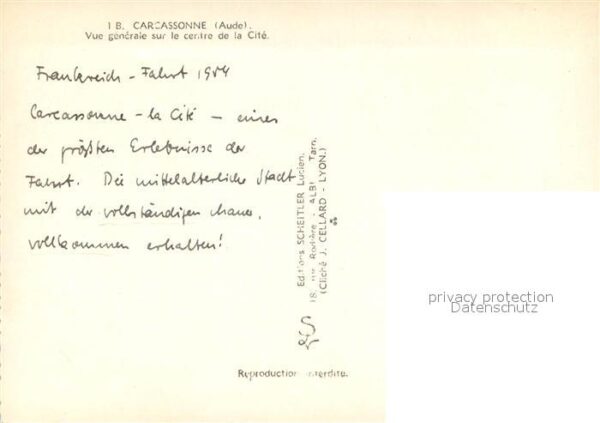 I B. CARCASSONNE (Aude).
Vue générale sur le centre de la Cité.
Frankreich - Fahrt 1954
Carcassonne - la Cité - eines
der größten Erlebnisse der
Fahrt. Die mittelalterliche Stadt
mit der vollständigen Mauer,
vollkommen erhalten!
Editions SCHEITLER Lucien.
18, rue Rodière - ALBI Tarn.
(Cliché J. CELLARD - LYON.)
Reproduction interdite.
privacy protection
Datenschutz